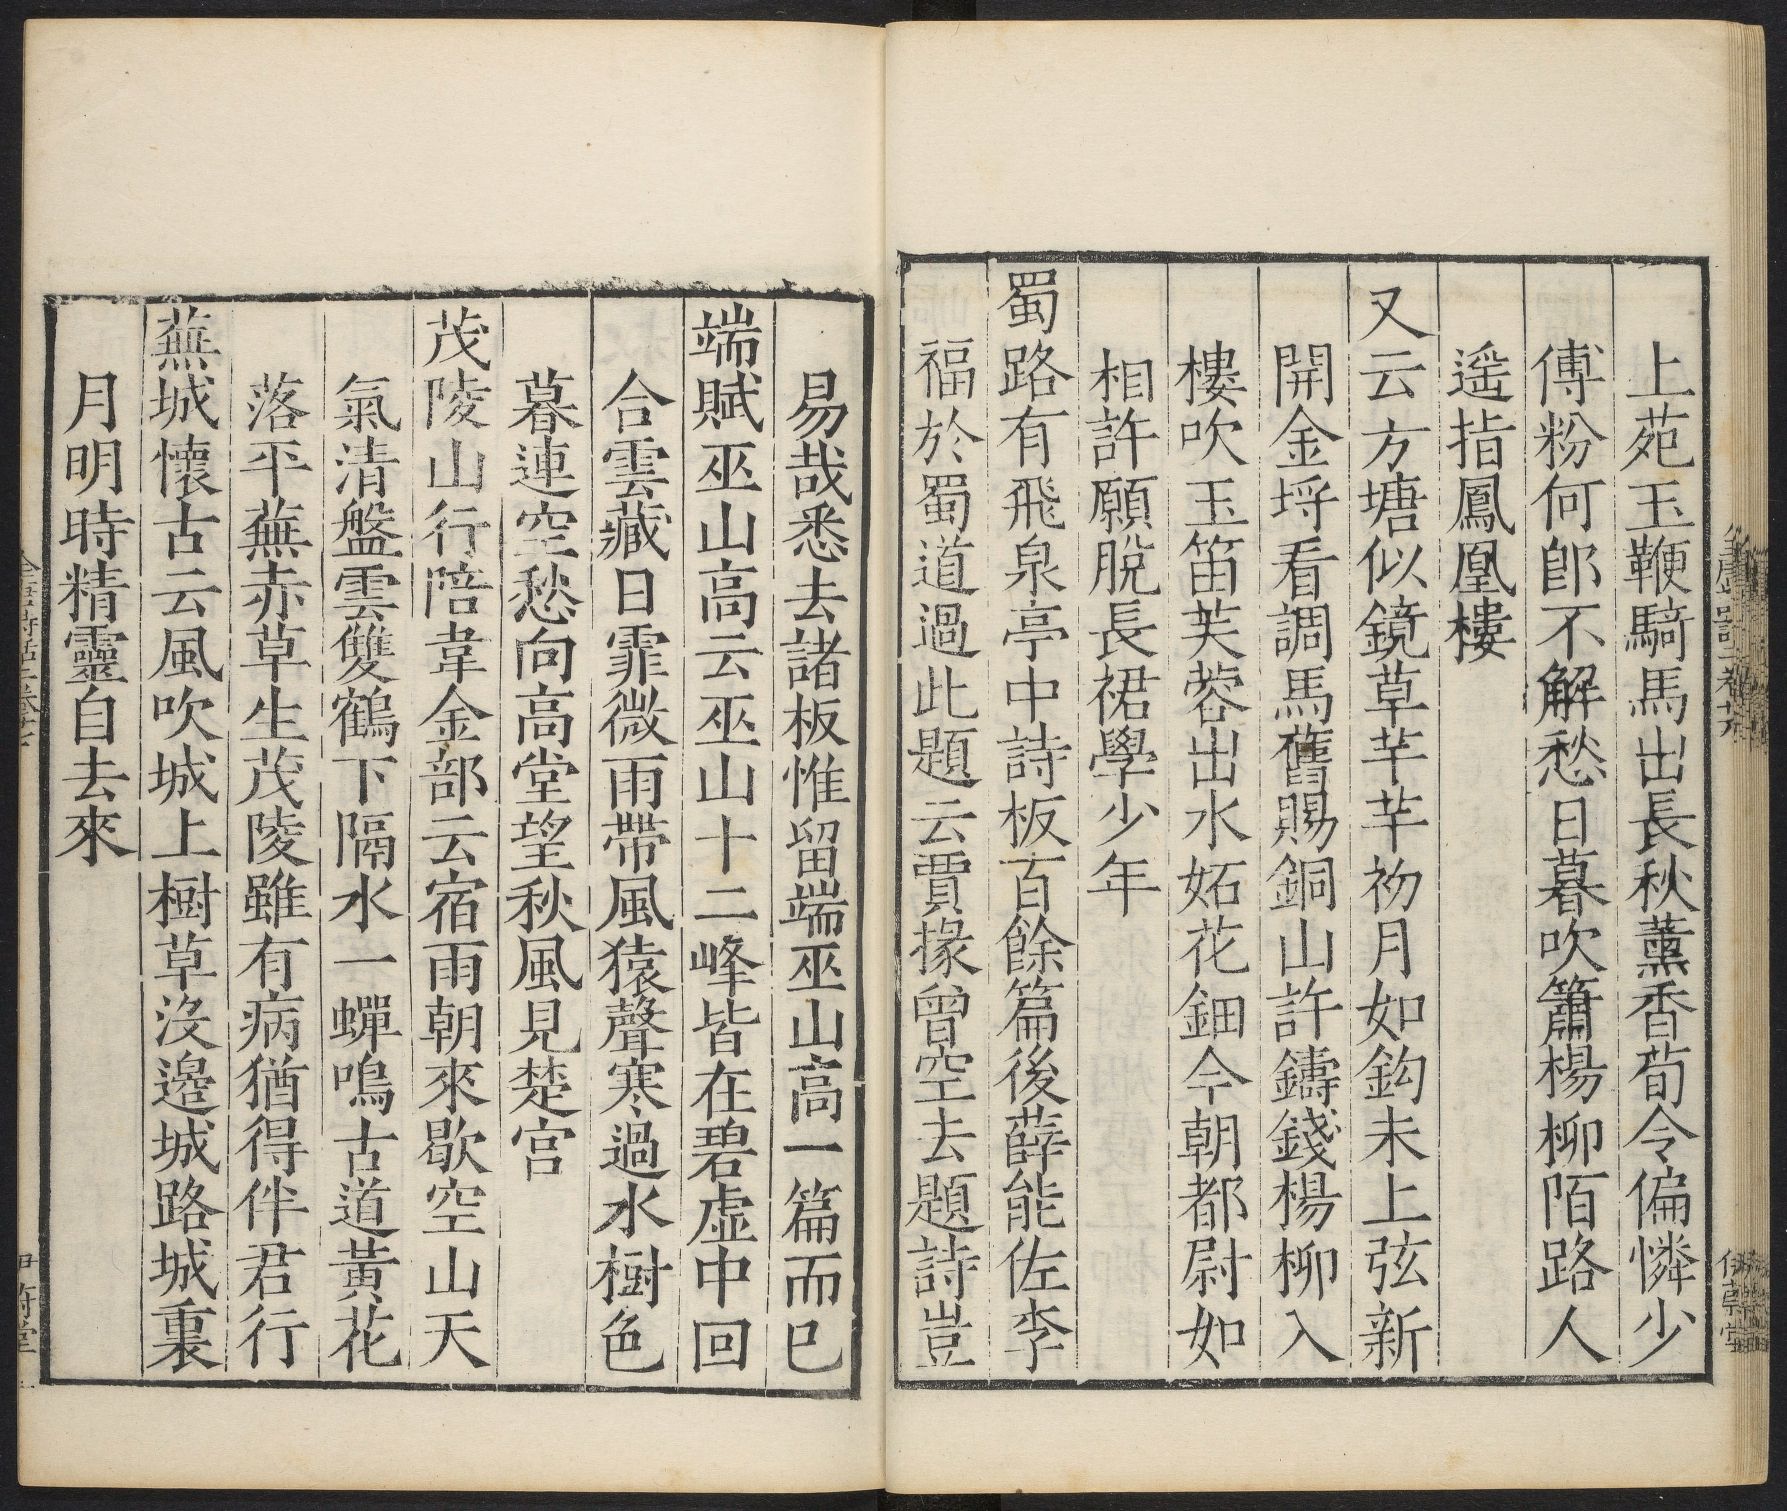 上苑玉鞭騎馬出長秋薰香荀令偏憐少
傅粉何郎不解愁日暮吹簫楊柳陌路人
遥指鳳凰樓
又云方塘似鏡草芊芊初月如鈎未上弦新
開金埓看調馬舊賜銅山許鑄錢楊柳入
樓吹玉笛芙蓉出水妬花鈿今朝都尉如
相許願脫長裾學少年
蜀路有飛泉亭中詩板百餘篇後薛能佐李
福於蜀道過此題云賈掾曾空去題詩豈
易哉悉去諸板惟留端巫山高一篇而已
端賦巫山高云巫山十二峰皆在碧虛中回
合雲藏日霏微雨帶風猿聲寒過水樹色
暮連空愁向高堂望秋風見楚宮
茂陵山行陪韋金部云宿雨朝來歇空山天
氣清盤雲雙鶴下隔水一蟬鳴古道黃花
落平蕪赤草生茂陵雖有病猶得伴君行
蕪城懷古云風吹城上樹草沒邊城路城裏
月明時精靈自去來